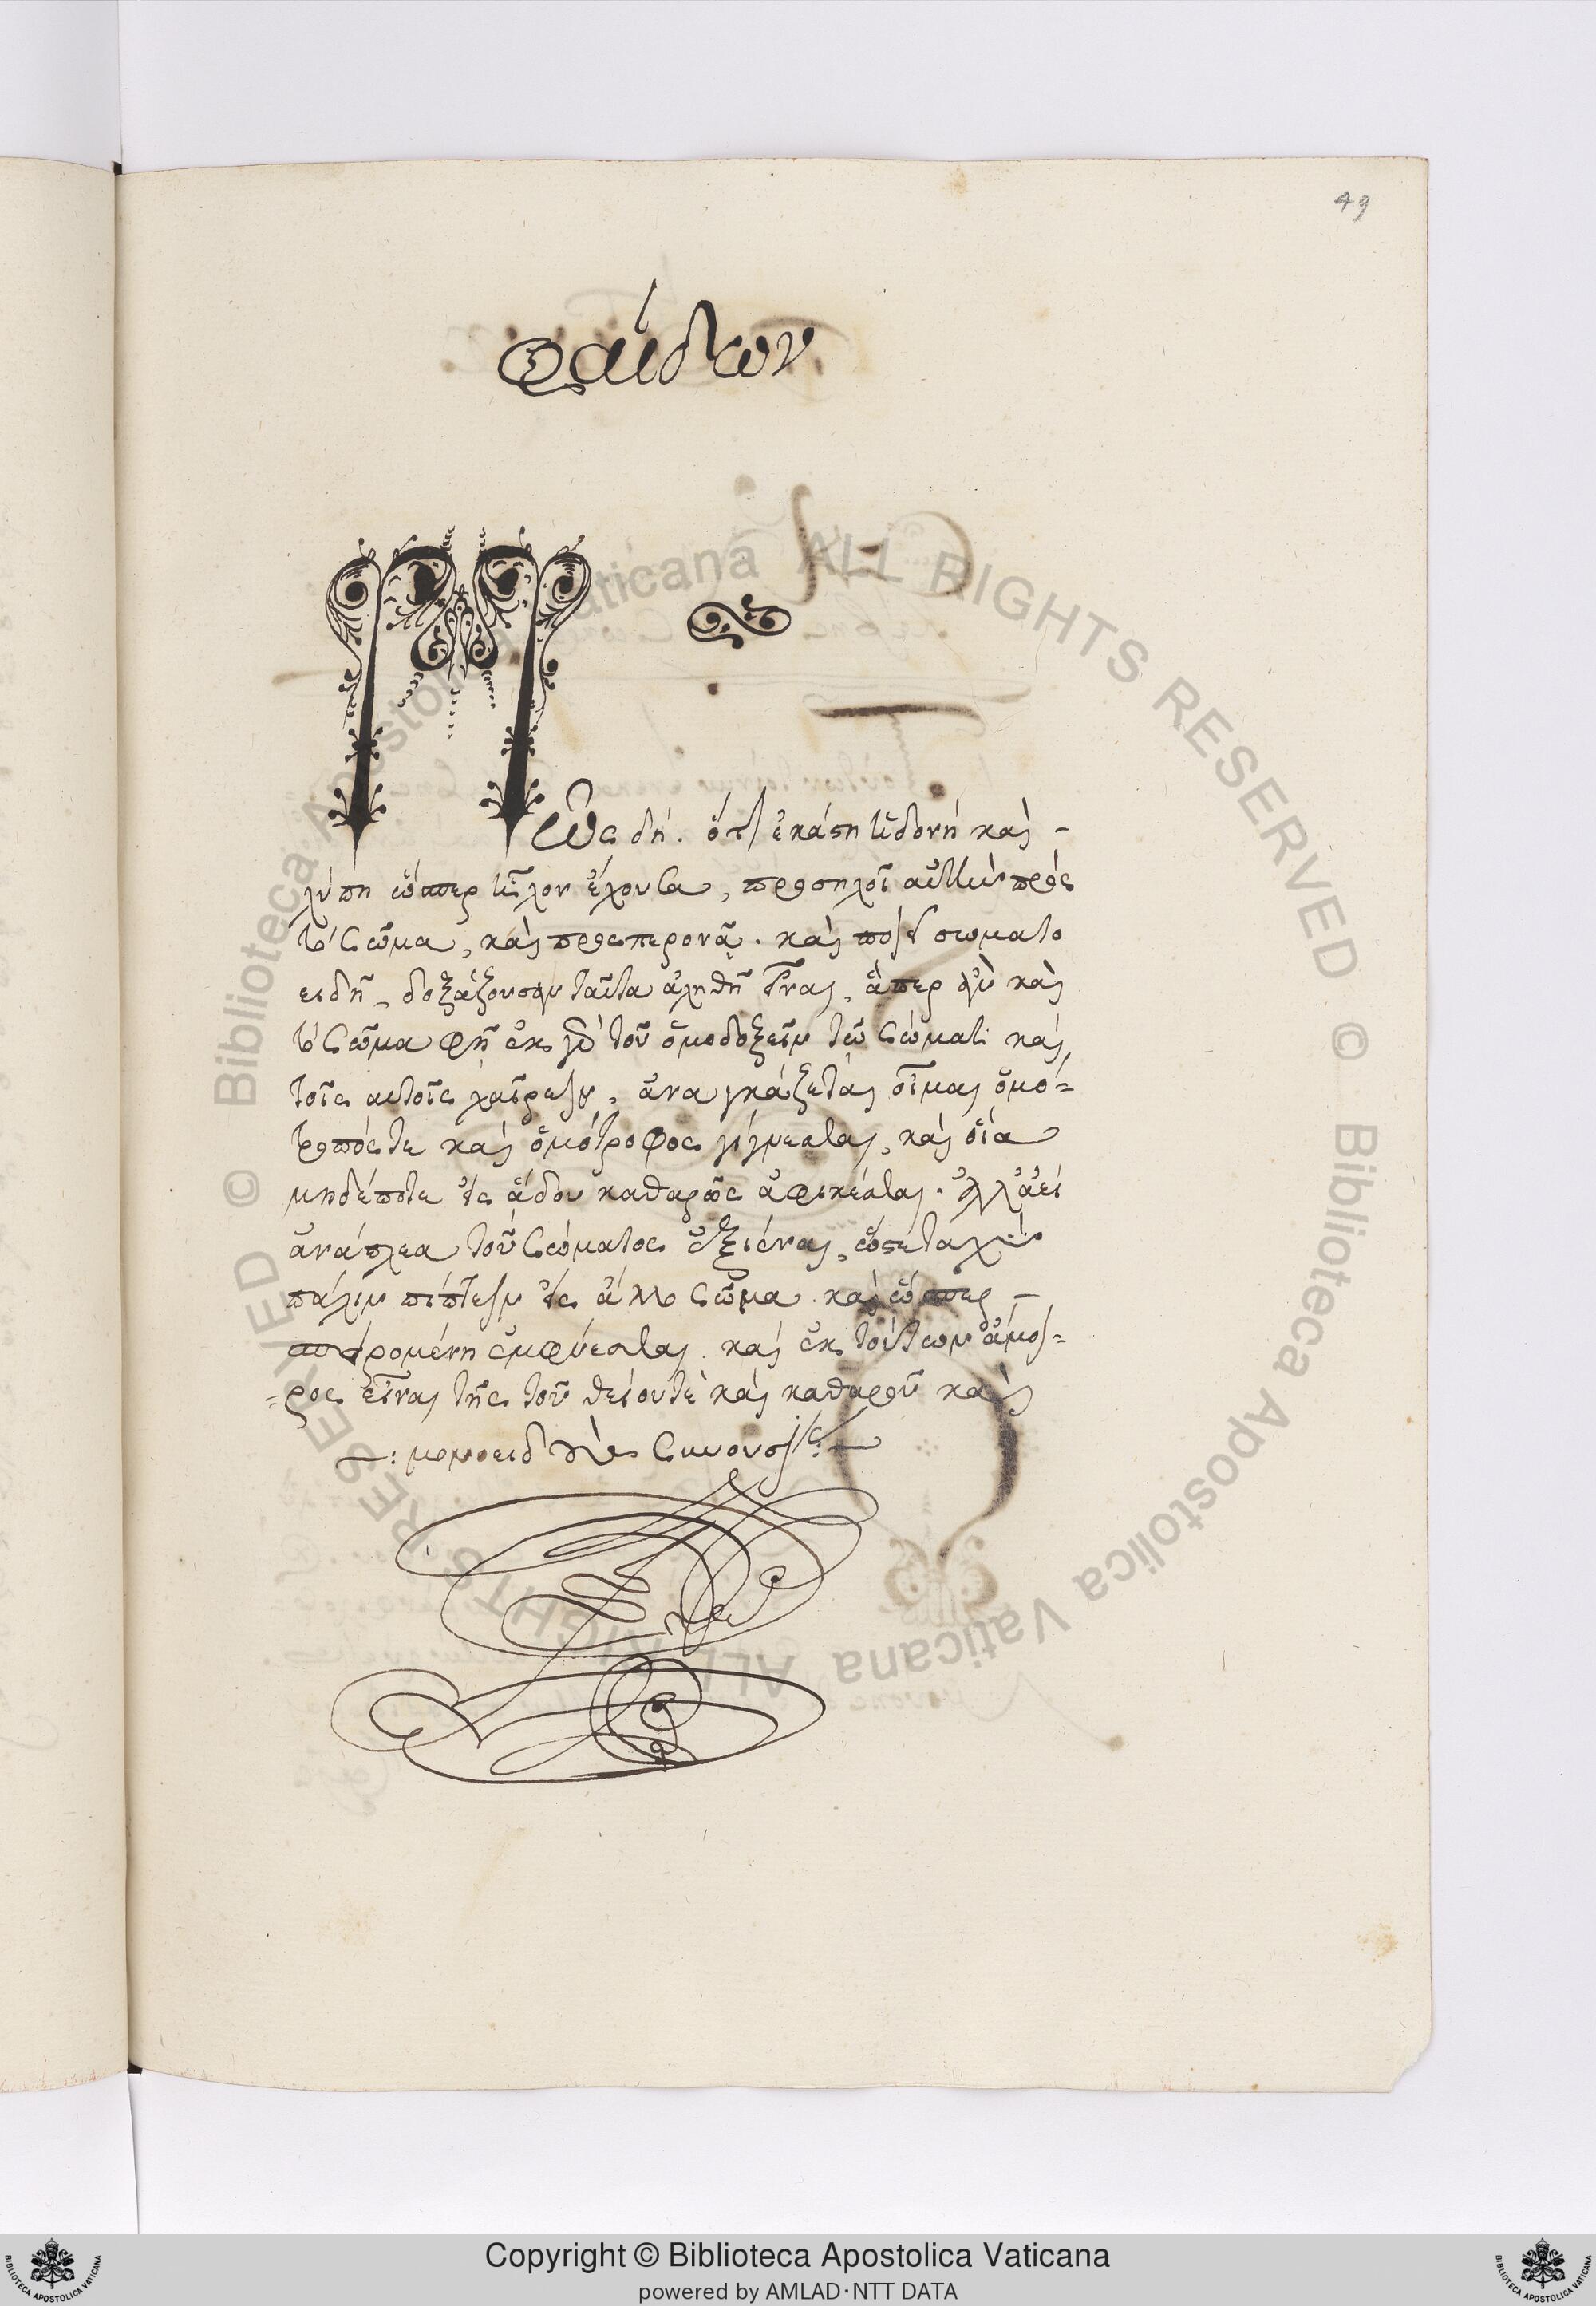 49
φαίδων
Πῶς δή. ὅτι ἑκάστη ἡδονὴ καὶ –
λύπη ὥσπερ ἧλον ἔχουσα, προσηλοῖ αὐτὴν πρὸς
τὸ σῶμα, καὶ προσπερονᾷ. καὶ ποιεῖ σωματο
ειδῆ, δοξάζουσαν ταῦτα ἀληθῆ εἶναι, ἅπερ ἂν καὶ
τὸ σῶμα φῇ ἐκ γὰρ τοῦ ὁμοδοξεῖν τῷ σώματι καὶ
τοῖς αυτοῖς χαίρειν, ἀναγκάζεται οἶμαι ὁμό-
τροπός τε καὶ ὁμότροφος γίγνεσται, καὶ οἵα
μηδέποτε εἰς ἅδου καθαρῶς ἀφικέσται. ἀλλ' ἀεὶ
ἀνάπλεα τοῦ σώματος ἐξιέναι, ὥστε ταχὺ
πάλιν πίπτειν εἰς ἄλλο σῶμα. καὶ ὥσπερ –
σπειρομένη ἐμφύεσται. καὶ ἐκ τούτων ἄμοι-
-ρος εἶναι τῆς τοῦ θείου τὲ καὶ καθαροῦ καὶ
–: μονοειδοῦς συνουσίας: –
Copyright © Biblioteca Apostolica Vaticana
powered by AMLAD·NTT DATA
© Biblioteca Apostolica Vaticana ALL RIGHTS RESERVED
© Biblioteca Apostolica Vaticana ALL RIGHTS RESERVED
BIBLIOTECA APOSTOLICA VATICANA
BIBLIOTECA APOSTOLICA VATICANA